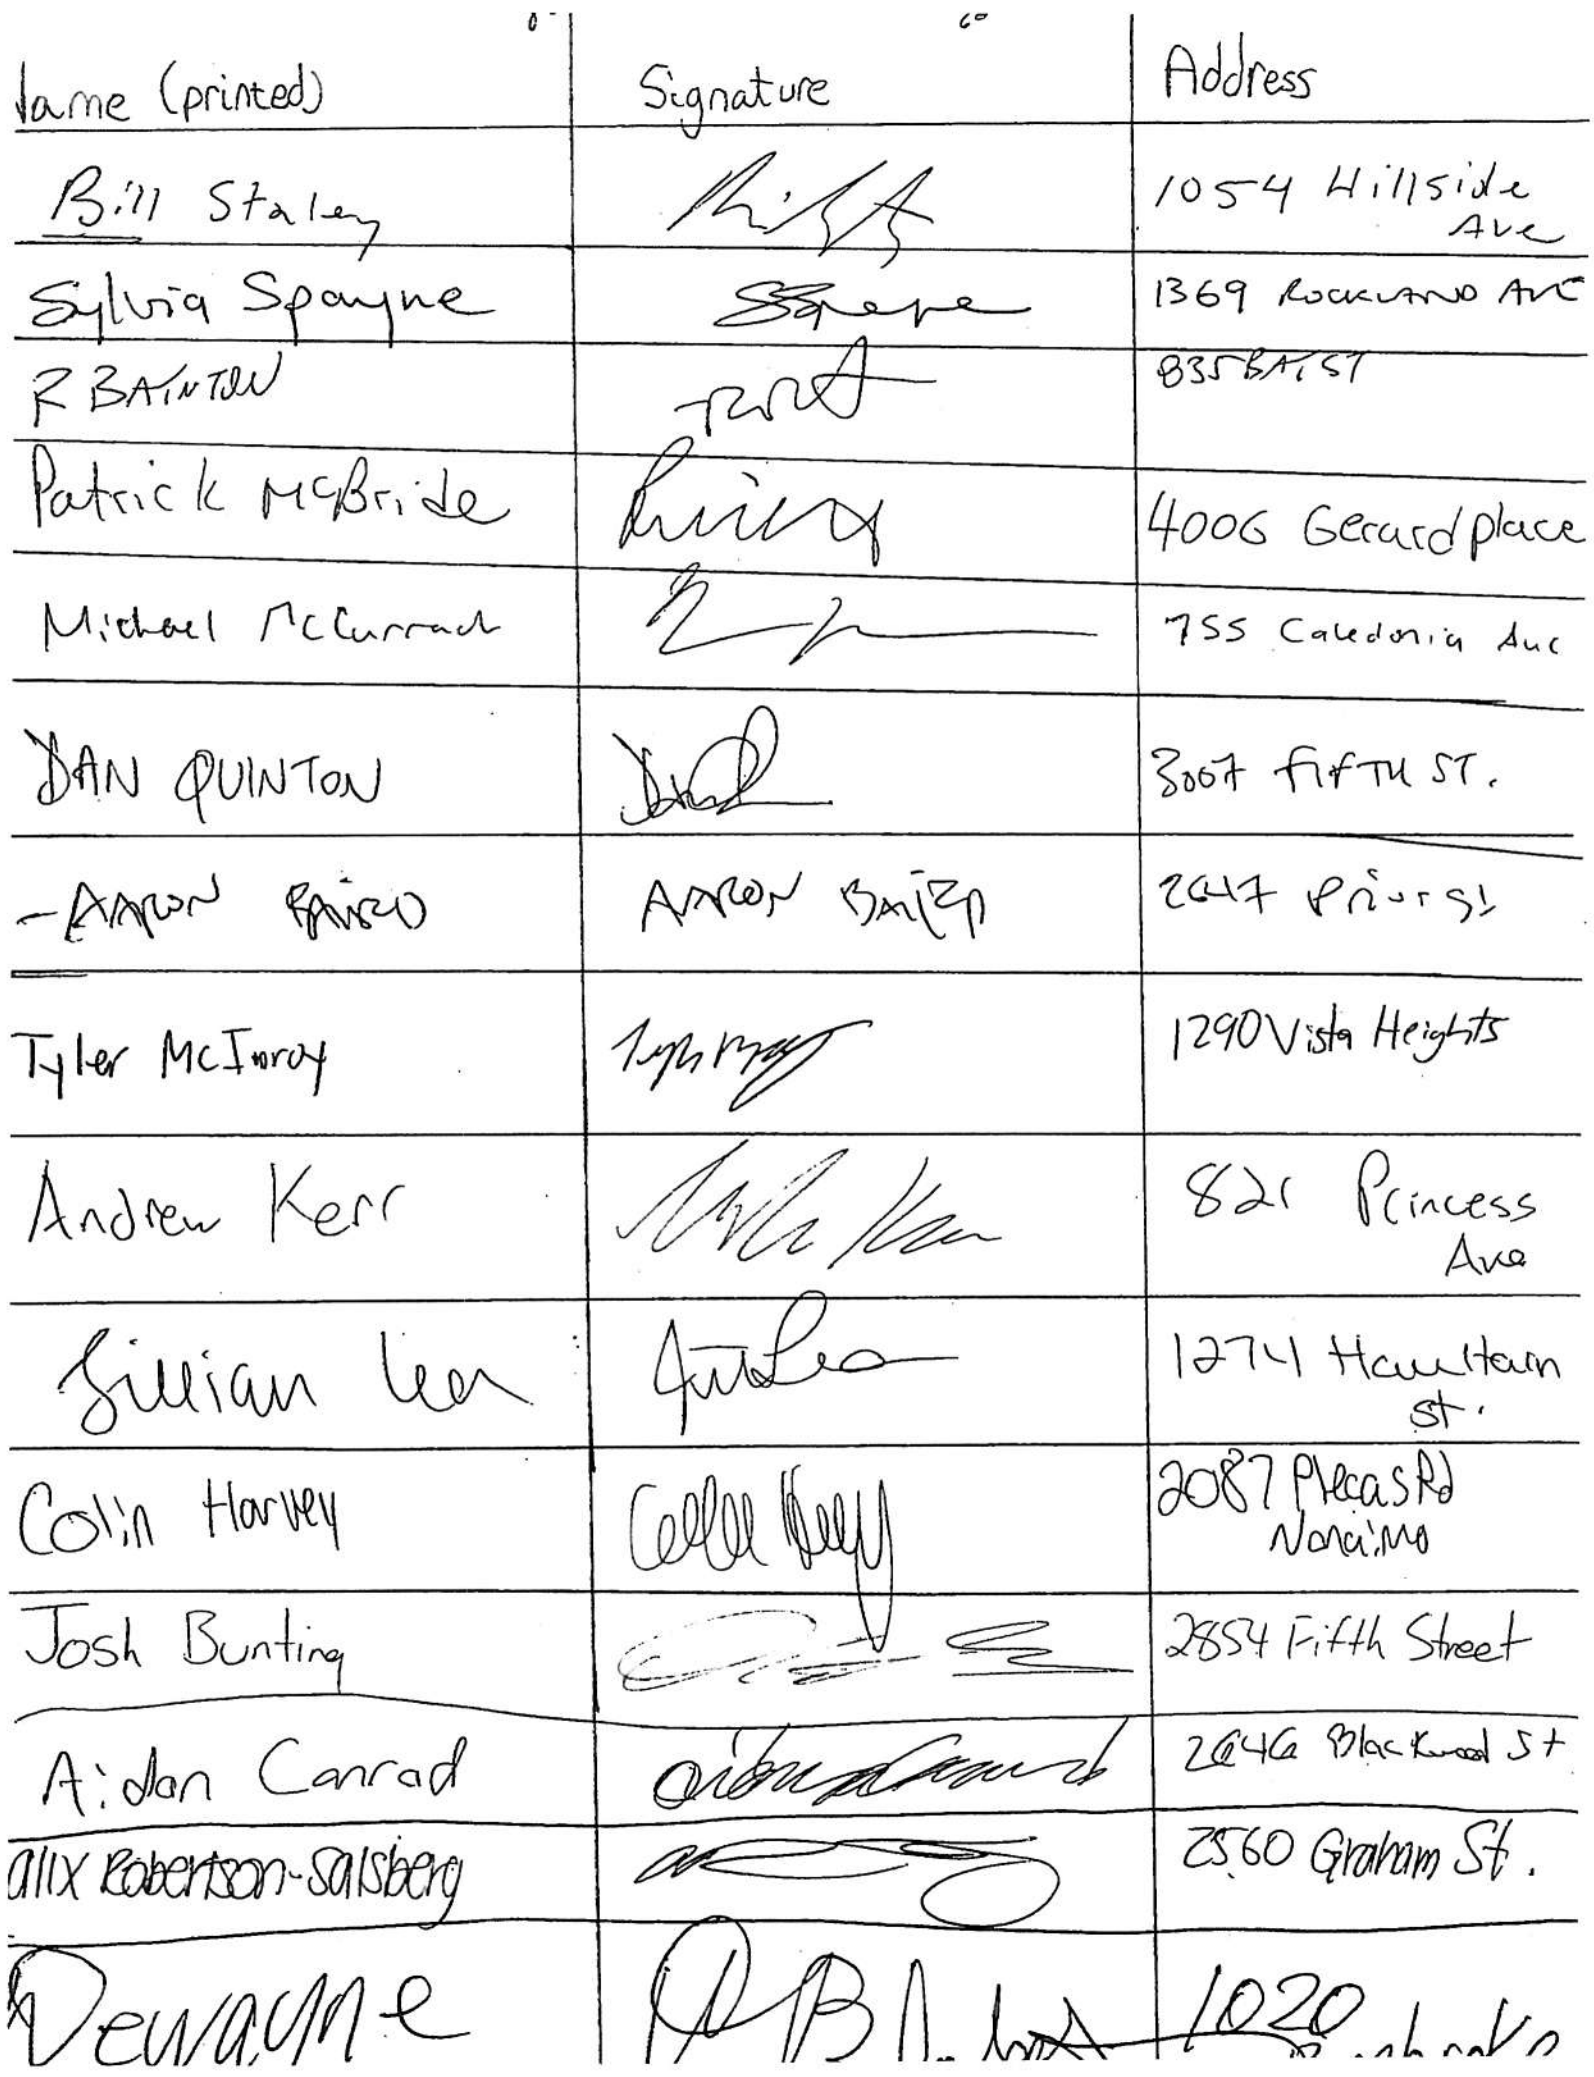 Name (printed) Signature Address
Bill Staley 1054 Hillside
Ave
Sylvia Spayne 1369 ROCKLAND AVE
R BAINTON 835 BAY ST
Patrick McBride 4006 Gerard place
Michael McCurrach 755 Caledonia Ave
DAN QUINTON 3007 FIFTH ST.
AARON BAIRD AARON BAIRD 2647 Prior St
Tyler McInroy 1290 Vista Heights
Andrew Kerr 821 Princess
Ave
Jillian Lea 1274 Haultain
St.
Colin Harvey 2087 Plecas Rd
Nanaimo
Josh Bunting 2854 Fifth Street
Aidan Conrad 2646 Blackwood St
alix Robertson-Salsberg 2560 Graham St.
Dewayne 1020